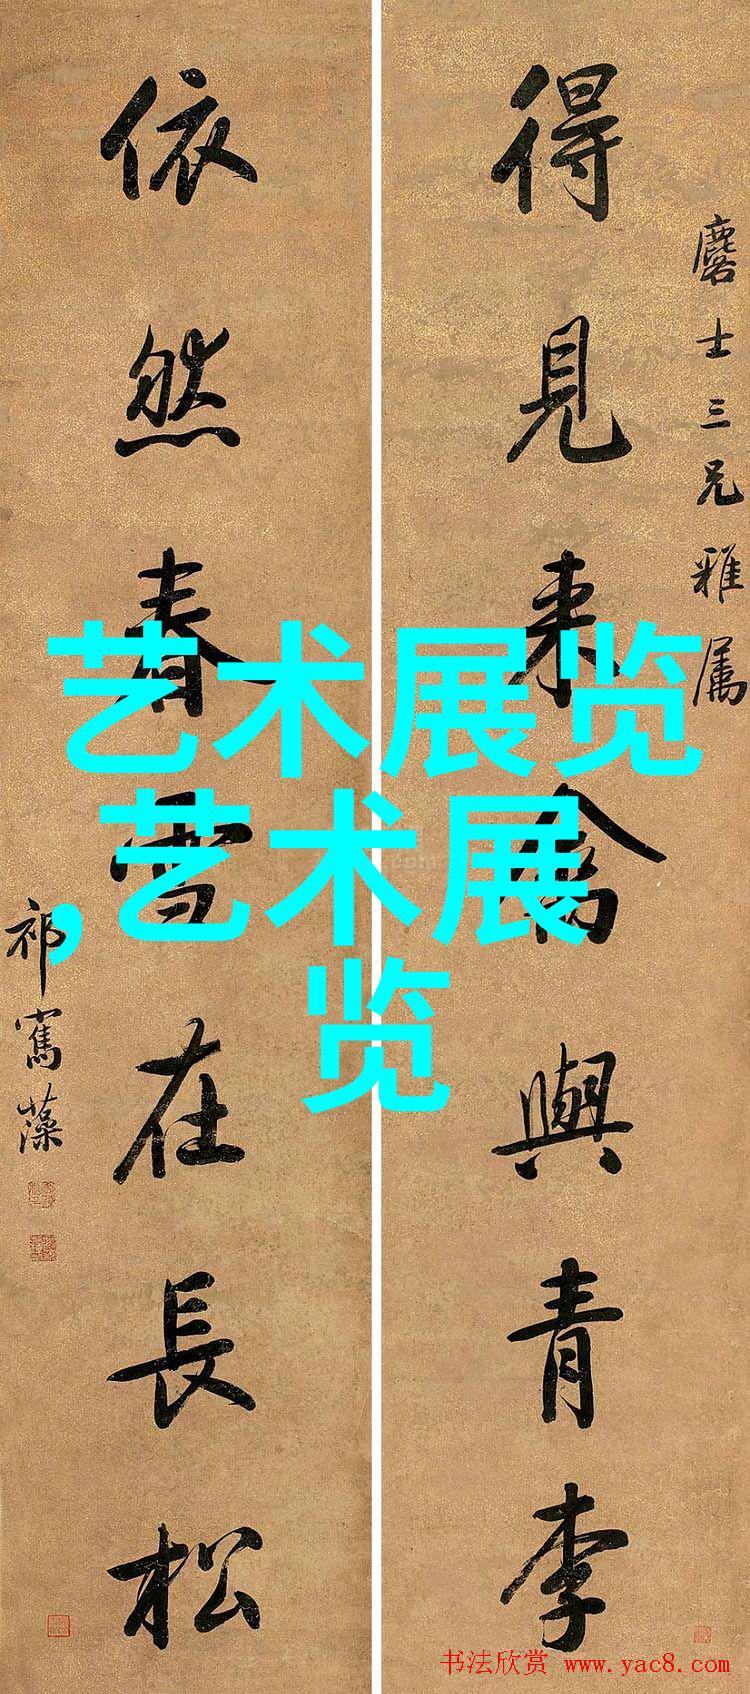 麐士三兄雅属
得見来禽與青李
依然春雪在長松
祁寯藻
艺术展览
,艺术展
览
书法欣赏 www.yac8.com